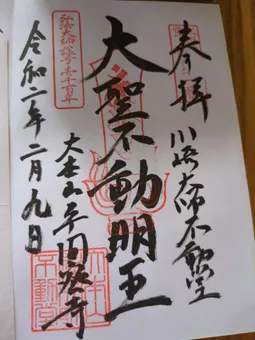 奉拝
川崎大師不動堂
大聖不動明王
弘法大師誕生千二百五十年
大本山平間寺
令和二年二月九日
不動堂